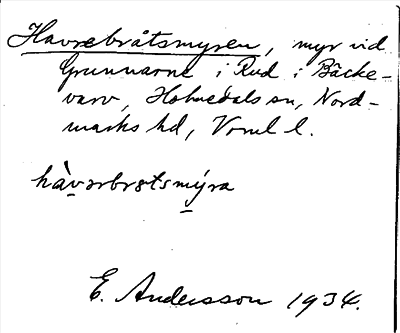 Havrebråtsmyren, myr vid
Grunnarne i Rud i Bäcke-
varv, Holmedals sn, Nord-
marks hd, Vrml l.
hàvərbrɷtsmýra
E. Andersson 1934.